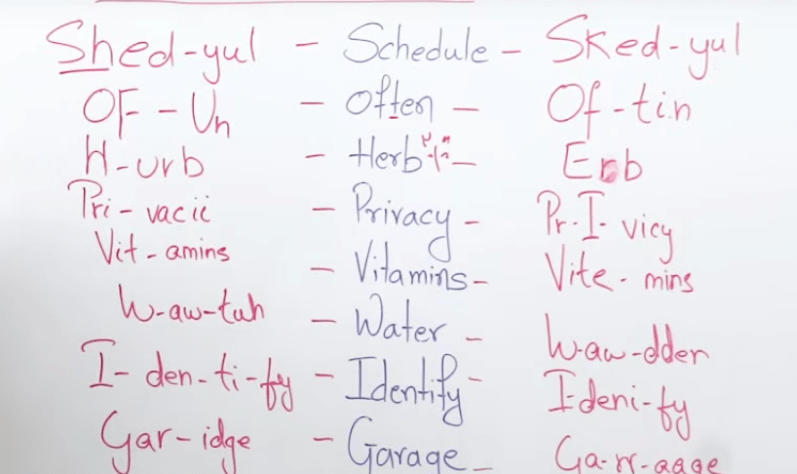 Shed-yul - Schedule - Sked-yul
OF - Un - Often - Of-tin
H-urb - Herb - Erb
Pri-vacii - Privacy - Pr-I-vicy
Vit-amins - Vitamins - Vite-mins
W-aw-tuh - Water - W-aw-dder
I-den-ti-fy - Identify - I-deni-fy
Gar-idge - Garage - Ga-rr-aage